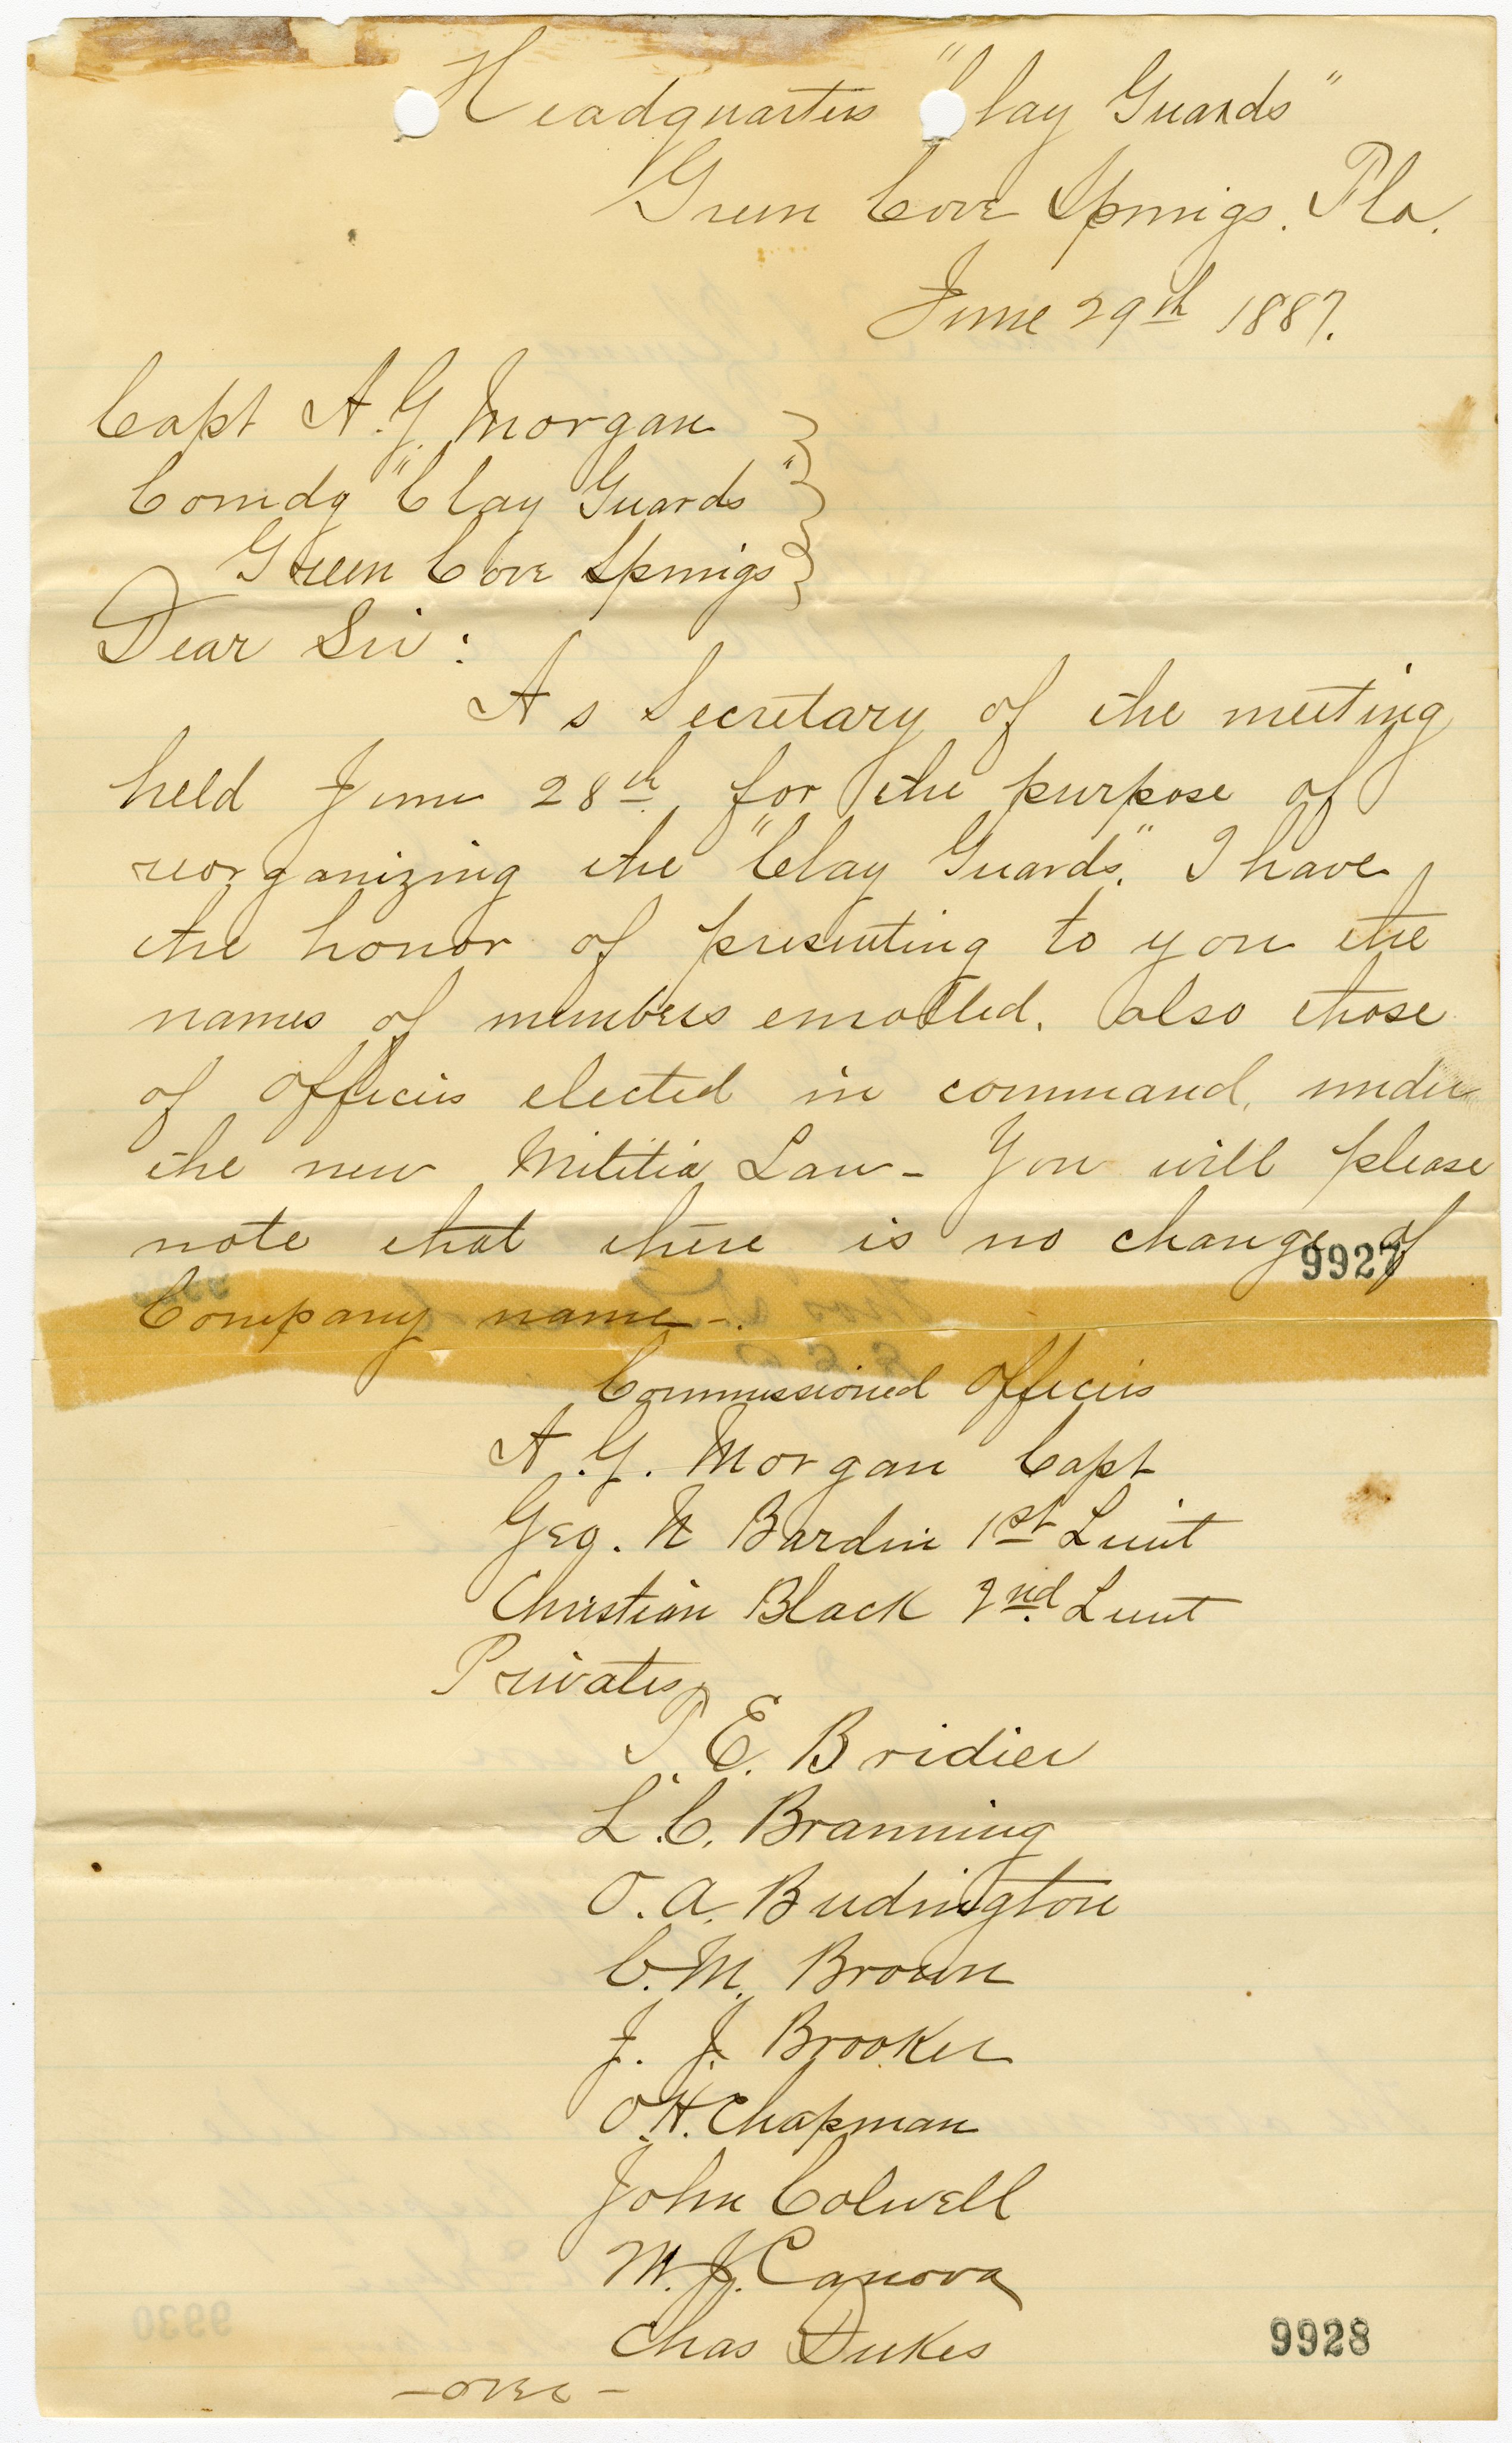 Headquarters "Clay Guards"
Green Cove Springs. Fla.
June 29th 1887.
Capt A. G. Morgan
Comdg "Clay Guards"
Green Cove Springs
Dear Sir:
As Secretary of the meeting
held June 28th, for the purpose of
reorganizing the "Clay Guards". I have
the honor of presenting to you the
names of members enrolled. also those
of officers elected in command, under
the new Militia Law - You will please
note that there is no change of
9927
Company name -.
Commissioned Officers
A. G. Morgan Capt
Geo. N Bardin 1st Lieut
Christian Black 2nd Lieut
Privates,
T. E. Bridier
L. C. Branning
O. A. Budington
C. M. Brown
J. J. Brooker
O. H. Chapman
John Colwell
M. J. Canova
Chas Dukes
9928
- over -
9930